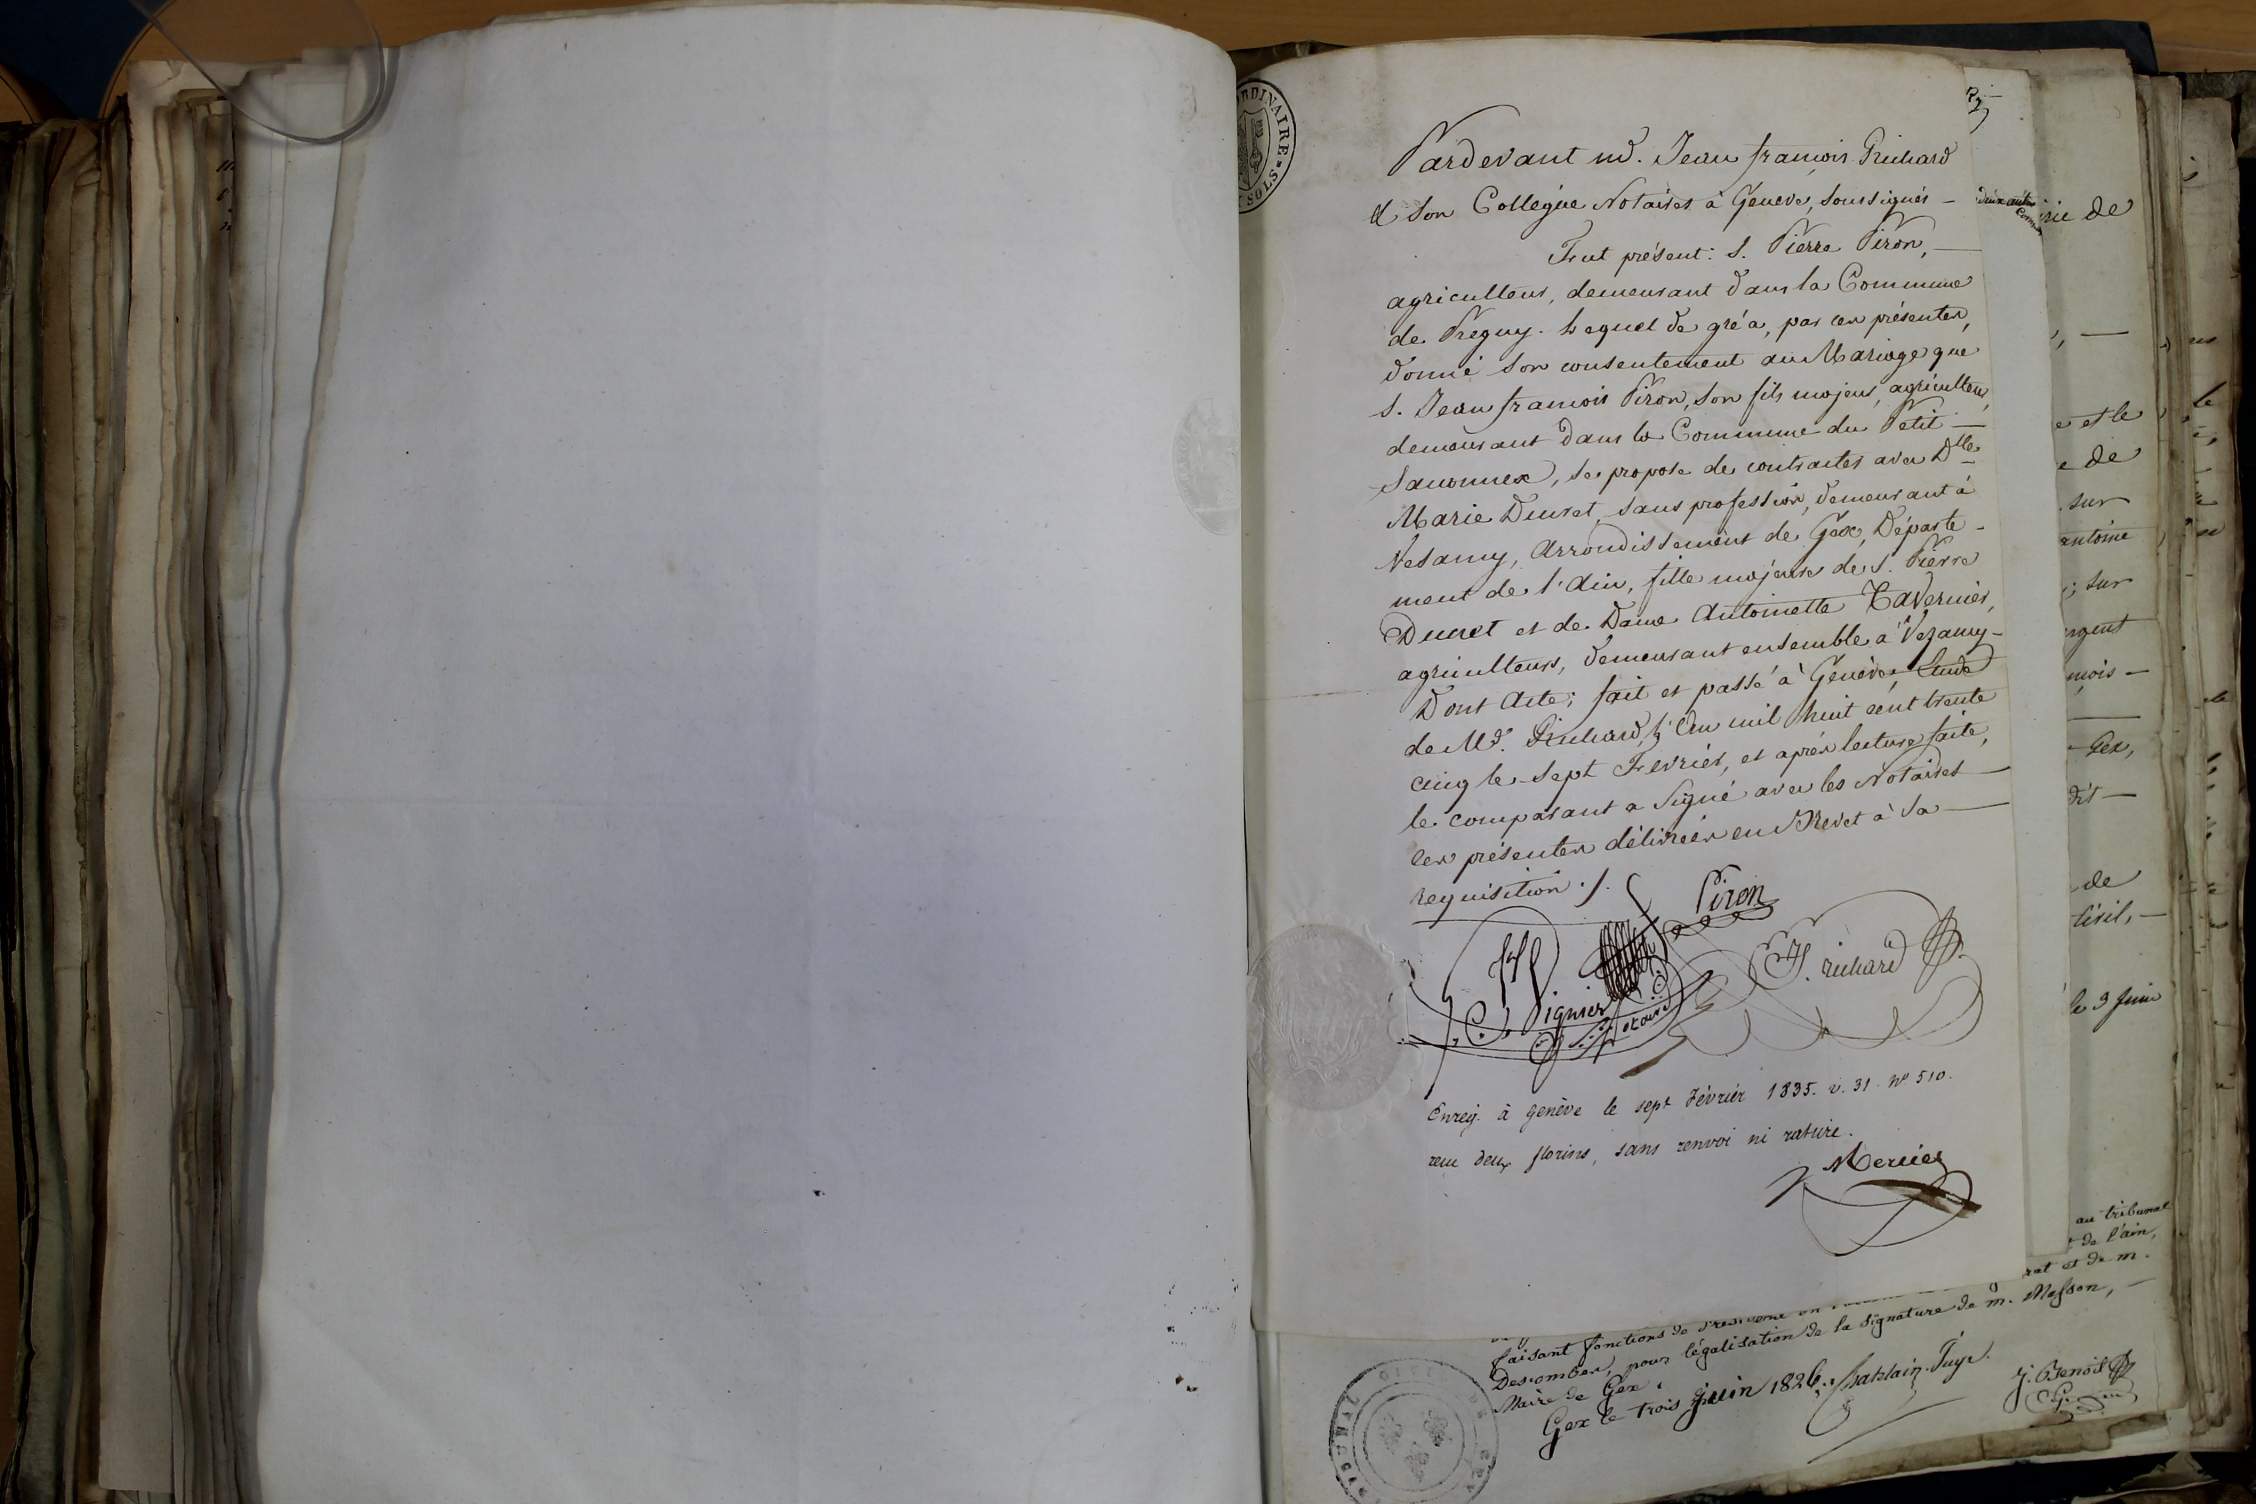 ORDINAIRE
SOLS
Pardevant md. Jean françois Richard
et son Collegue Notaires à Geneve, soussignés —
Fut présent: S. Pierre Piron, —
agriculteur, demeurant dans la Commune
de Pregny. Lequel de gré a, par ces présentes,
donné son consentement au Mariage que
S. Jean francois Piron, son fils majeur, agriculteur,
demeurant dans la Commune du Petit —
Saconnex, se propose de contracter avec Dlle
Marie Ducret, sans profession, demeurant à
Vesancy, Arrondissement de Gex, Departe-
ment de l'Ain, fille majeure de S. Pierre
Ducret et de Dame Antoinette Tavernier,
agriculteurs, demeurant ensemble à Vezancy —
Dont Acte; fait et passé à Genève, Etude
de Md. Richard, l'An mil huit cent trente
cinq le sept Fevrier, et aprés lecture faite,
le comparant a signé avec les Notaires —
ces présentes délivrées en Brevet à sa —
requisition ./.
Piron
Vignier
Notaire
J. F. richard
Enreg. à genève le sept février 1835. v. 31. no 510.
reçu deux florins, sans renvoi ni rature.
Mercier
rie de
e et le
e de
sur
antoine
sur
argent
nçois —
Gex,
dit —
de
Civil, —
le 3 Juin
au tribunal
de l'ain,
et de m.
faisant fonctions de
Descombes, pour légalisation de la signature de m. Masson, —
Maire de Gex.
Gex le trois juin 1826. Chatelain Juge.
J. Benoit
TRIBUNAL CIVIL DE GEX